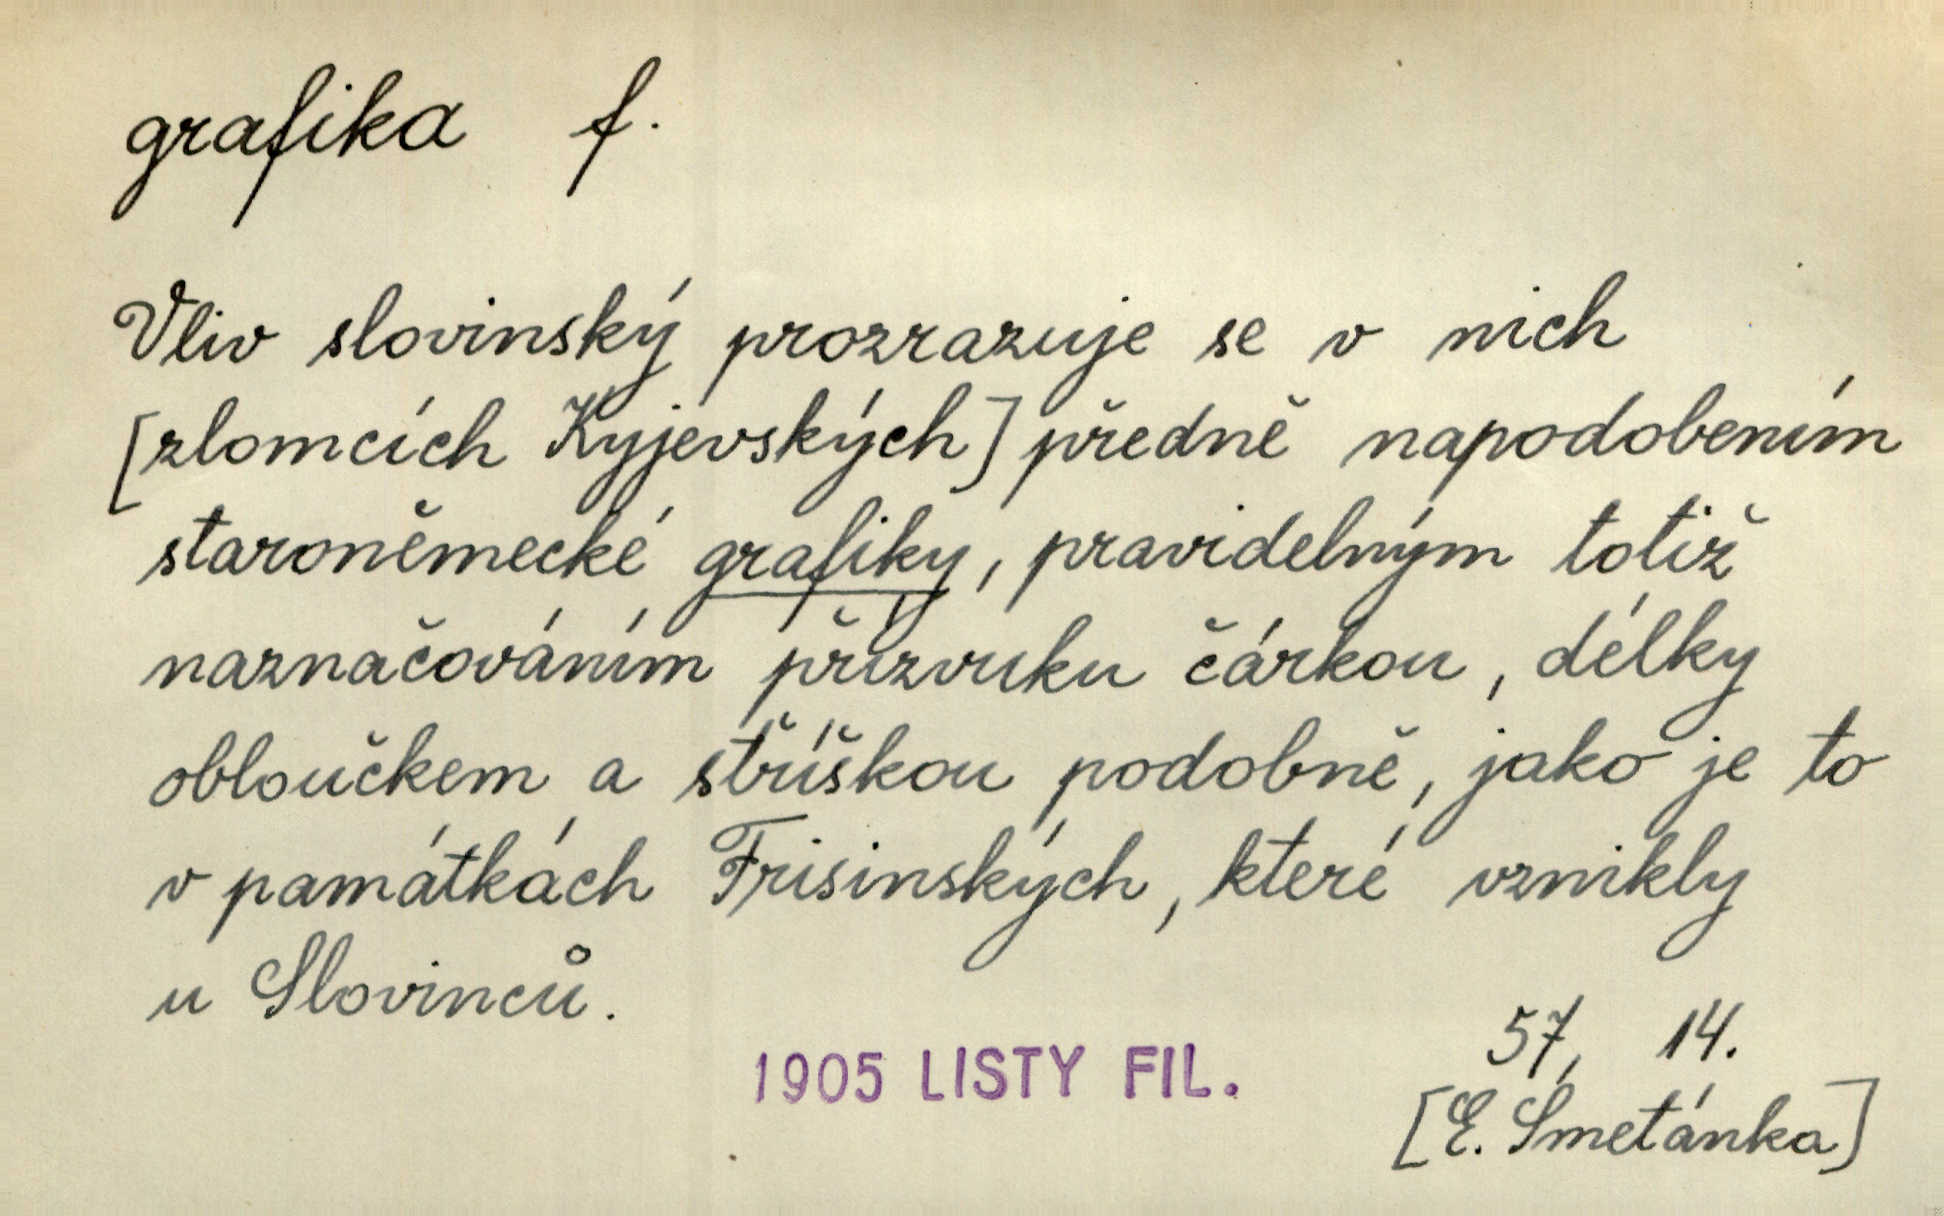 grafika f.
Vliv slovinský prozrazuje se v nich
[zlomcích Kyjevských] předně napodobením
staroněmecké grafiky, pravidelným totiž
naznačováním přízvuku čárkou, délky
obloučkem a stříškou podobně, jako je to
v památkách Frisinských, které vznikly
u Slovinců.
57, 14.
1905 LISTY FIL.
[E. Smetánka]